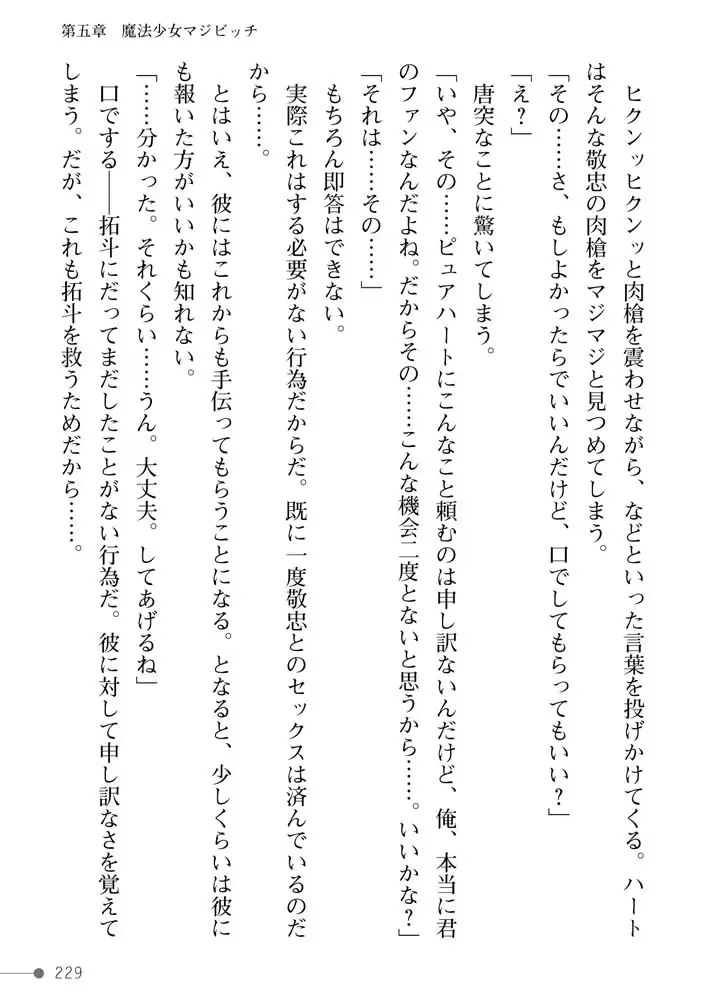 第五章　魔法少女マジビッチ
ヒクンッヒクンッと肉槍を震わせながら、などといった言葉を投げかけてくる。ハート
はそんな敬忠の肉槍をマジマジと見つめてしまう。
「その……さ、もしよかったらでいいんだけど、口でしてもらってもいい？」
「え？」
唐突なことに驚いてしまう。
「いや、その……ピュアハートにこんなこと頼むのは申し訳ないんだけど、俺、本当に君
のファンなんだよね。だからその……こんな機会二度とないと思うから……。いいかな？」
「それは……その……」
もちろん即答はできない。
実際これはする必要がない行為だからだ。既に一度敬忠とのセックスは済んでいるのだ
から……。
とはいえ、彼にはこれからも手伝ってもらうことになる。となると、少しくらいは彼に
も報いた方がいいかも知れない。
「……分かった。それくらい……うん。大丈夫。してあげるね」
口でする――拓斗にだってまだしたことがない行為だ。彼に対して申し訳なさを覚えて
しまう。だが、これも拓斗を救うためだから……。
229